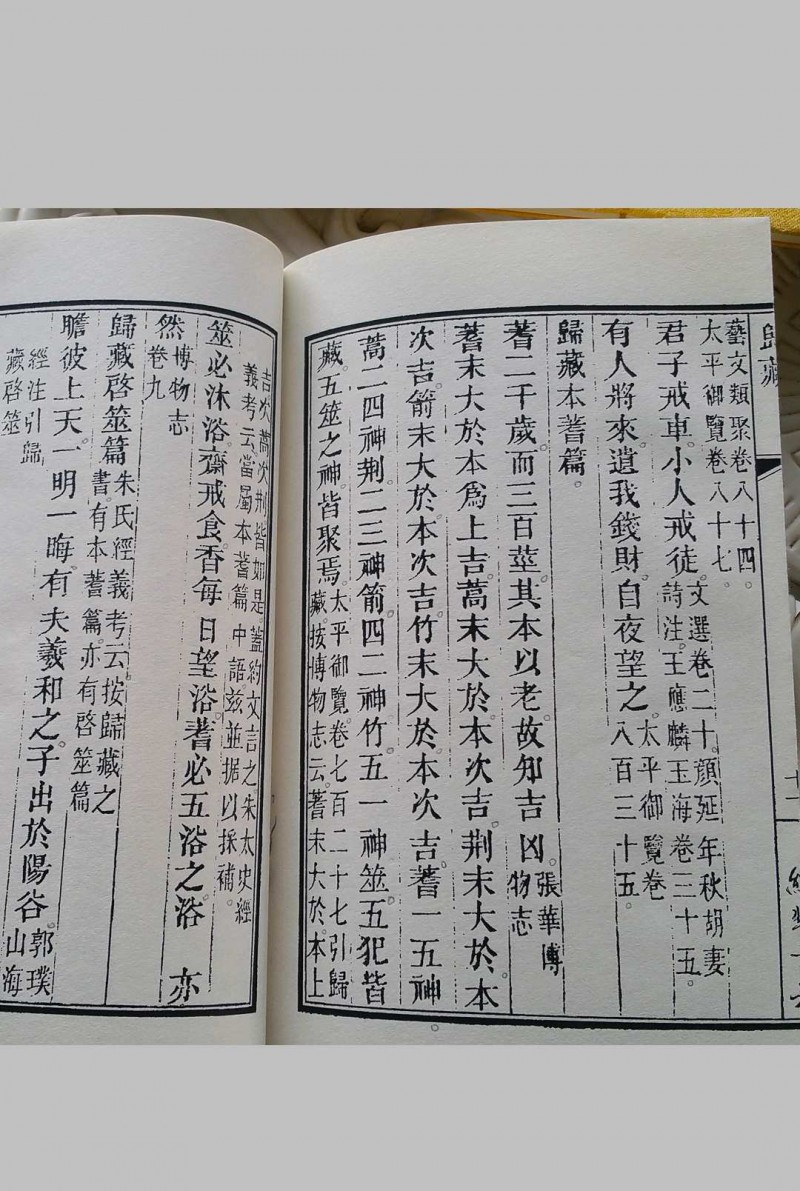 歸藏
藝文類聚卷八十四。
太平御覽卷八十七。
君子戒車。小人戒徒。文選卷二十。顏延年秋胡妻
詩注。王應麟玉海卷三十五。
有人將來。遺我錢財。自夜望之。太平御覽卷
八百三十五。
歸藏本蓍篇。
蓍二千歲而三百莖。其本以老。故知吉凶。張華博
物志
蓍末大於本爲上吉。蒿末大於本次吉。荆末大於本
次吉。箭末大於本次吉。竹末大於本次吉。蓍一五神。
蒿二四神。荆二三神。箭四二神。竹五一神。筮五犯皆
藏。五筮之神皆聚焉。太平御覽。卷七百二十七引歸
藏。按博物志云。蓍末大於。本上
吉。次蒿。次荆。皆如是。蓋約文言之。朱太史經
義考云。當屬本蓍篇中語。兹並据以採補。
筮必沐浴齋戒食香。每日望浴蓍。必五浴之。浴 亦
然博物志
卷九
歸藏啓筮篇朱氏經義考云。按歸藏之
書。有本蓍篇。亦有啓筮篇
瞻彼上天。一明一晦。有夫羲和之子。出於陽谷。郭璞
山海
經注引歸
藏啓筮